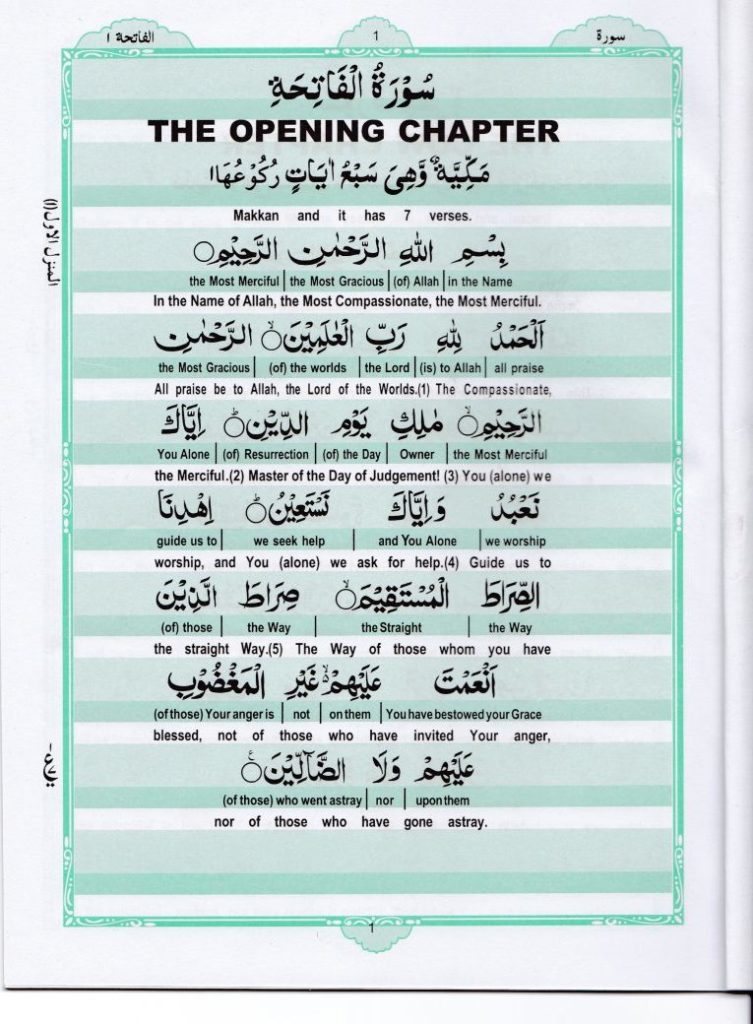 سورة 1 الفاتحة ١
سُوْرَةُ الْفَاتِحَةِ
THE OPENING CHAPTER
مَكِّيَّةٌ وَّهِىَ سَبْعُ اٰيَاتٍ رُكُوْعُهَا١
Makkan and it has 7 verses.
بِسْمِ اللّٰهِ الرَّحْمٰنِ الرَّحِيْمِ○
the Most Merciful | the Most Gracious | (of) Allah | in the Name
In the Name of Allah, the Most Compassionate, the Most Merciful.
اَلْحَمْدُ لِلّٰهِ رَبِّ الْعٰلَمِيْنَ○ۙ الرَّحْمٰنِ
the Most Gracious | (of) the worlds | the Lord | (is) to Allah | all praise
All praise be to Allah, the Lord of the Worlds.(1) The Compassionate,
الرَّحِيْمِ○ۙ مٰلِكِ يَوْمِ الدِّيْنِ○ؕ اِيَّاكَ
You Alone | (of) Resurrection | (of) the Day | Owner | the Most Merciful
the Merciful.(2) Master of the Day of Judgement! (3) You (alone) we
نَعْبُدُ وَاِيَّاكَ نَسْتَعِيْنُ○ؕ اِهْدِنَا
guide us to | we seek help | and You Alone | we worship
worship, and You (alone) we ask for help.(4) Guide us to
الصِّرَاطَ الْمُسْتَقِيْمَ○ۙ صِرَاطَ الَّذِيْنَ
(of) those | the Way | the Straight | the Way
the straight Way.(5) The Way of those whom you have
اَنْعَمْتَ عَلَيْهِمْ ۙ غَيْرِ الْمَغْضُوْبِ
(of those) Your anger is | not | on them | You have bestowed your Grace
blessed, not of those who have invited Your anger,
عَلَيْهِمْ وَلَا الضَّآلِّيْنَ○
(of those) who went astray | nor | upon them
nor of those who have gone astray.
المنزل الاول(١)
1